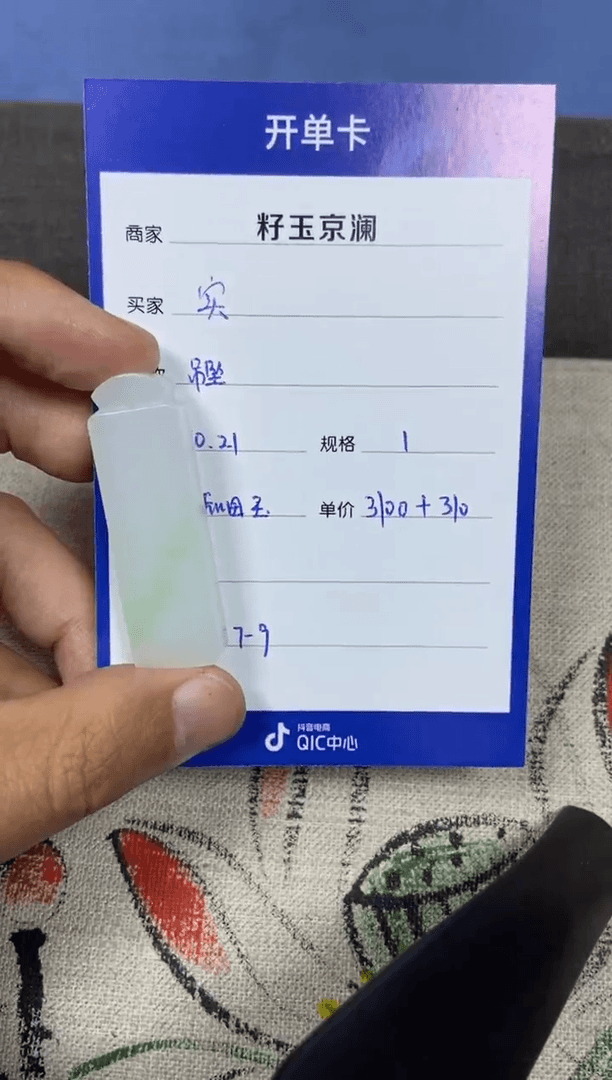 开单卡
商家 籽玉京澜
买家 实
吊坠
0.21 规格 1
田玉 单价 3100+310
7-9
抖音电商
QIC中心